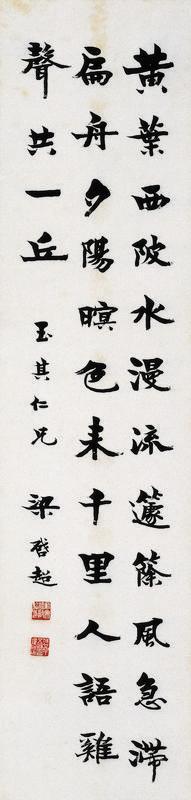 黃葉西陂水漫流籧篨風急滯
扁舟夕陽暝色来千里人語雞
聲共一丘
玉其仁兄
梁啓超